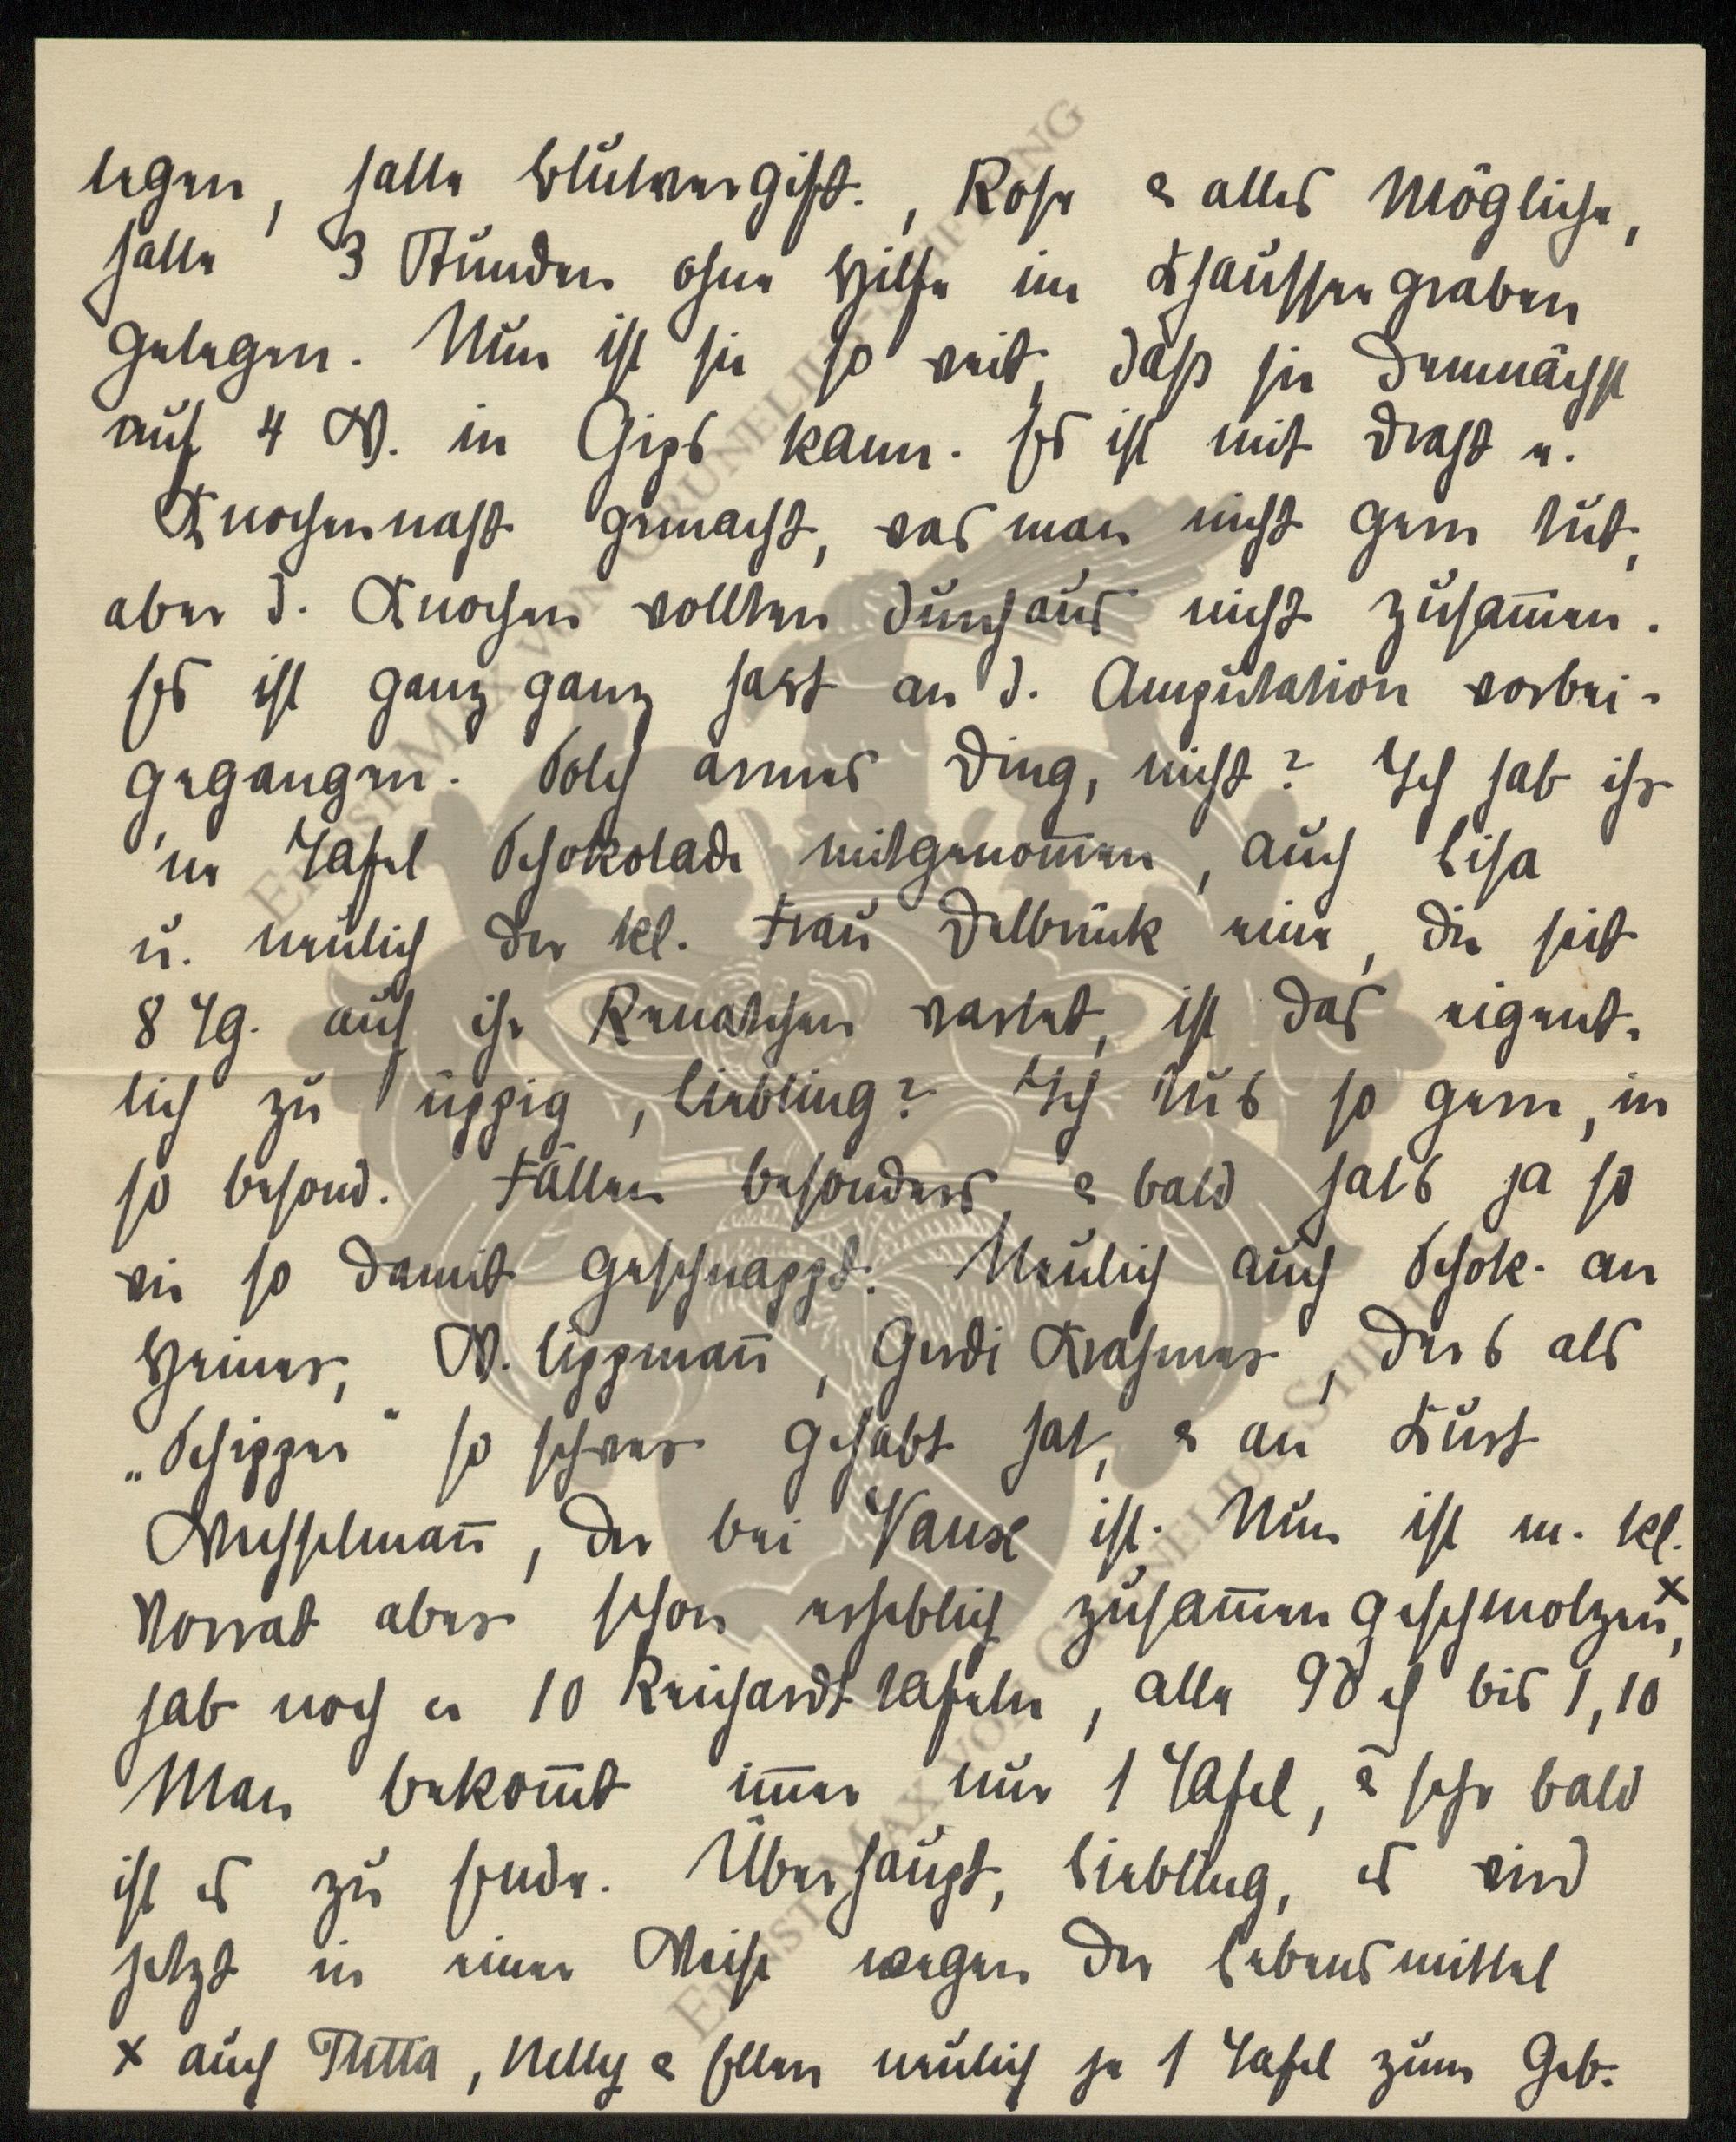 legen, hatte Blutvergift., Rose & alles Mögliche,
hatte 3 Stunden ohne Hilfe im Chausseegraben
gelegen. Nun ist sie so weit, daß sie demnächst
auf 4 W. in Gips kann. Es ist mit Draht u.
Knochennaht gemacht, was man nicht gern tut,
aber d. Knochen wollten durchaus nicht zusam̄en.
Es ist ganz ganz hart an d. Amputation vorbei-
gegangen. Solch armes Ding, nicht? Ich hab ihr
'ne Tafel Schokolade mitgenom̄en, auch Lisa
u. neulich der kl. Frau Delbrück eine, die seit
8 Tg. auf ihr Renatchen wartet, ist das eigent-
lich zu üppig, Liebling? Ich tu's so gern, in
so besond. Fällen besonders, & bald hat's ja so
wie so damit geschnappt. Neulich auch Schok. an
Heiner, W. Lippman̄, Gerdi Krahmer, der's als
„Schipper“ so schwer gehabt hat, & an Kurt
Wesselman̄, der bei Vaux ist. Nun ist m. kl.
Vorrat aber schon erheblich zusam̄engeschmolzen x,
hab noch c 10 Reichardt tafeln, alle 90 ch bis 1,10
Man bekom̄t im̄er nur 1 Tafel, & sehr bald
ist es zu Ende. Überhaupt, Liebling, es wird
jetzt in einer Weise wegen der Lebensmittel
x auch Thetta, Nelly & Ellen neulich je 1 Tafel zum Geb.
ERNST MAX VON GRUNELIUS-STIFTUNG
ERNST MAX VON GRUNELIUS-STIFTUNG